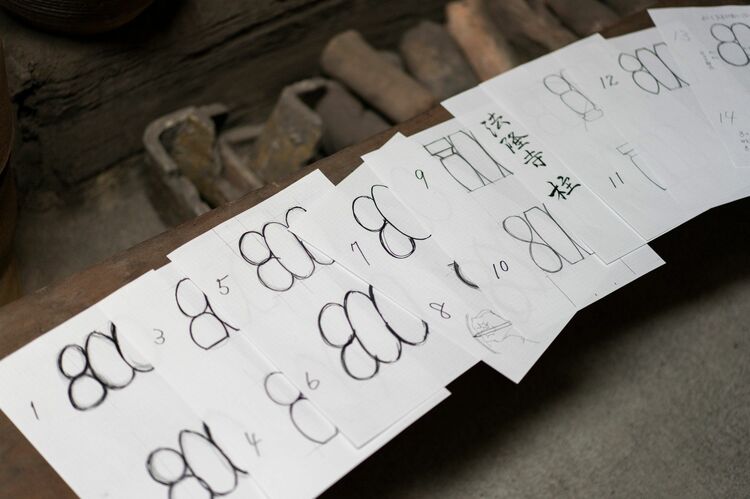 1
3
4
5
6
7
8
9
法隆寺
柱
10
11
12
13
14